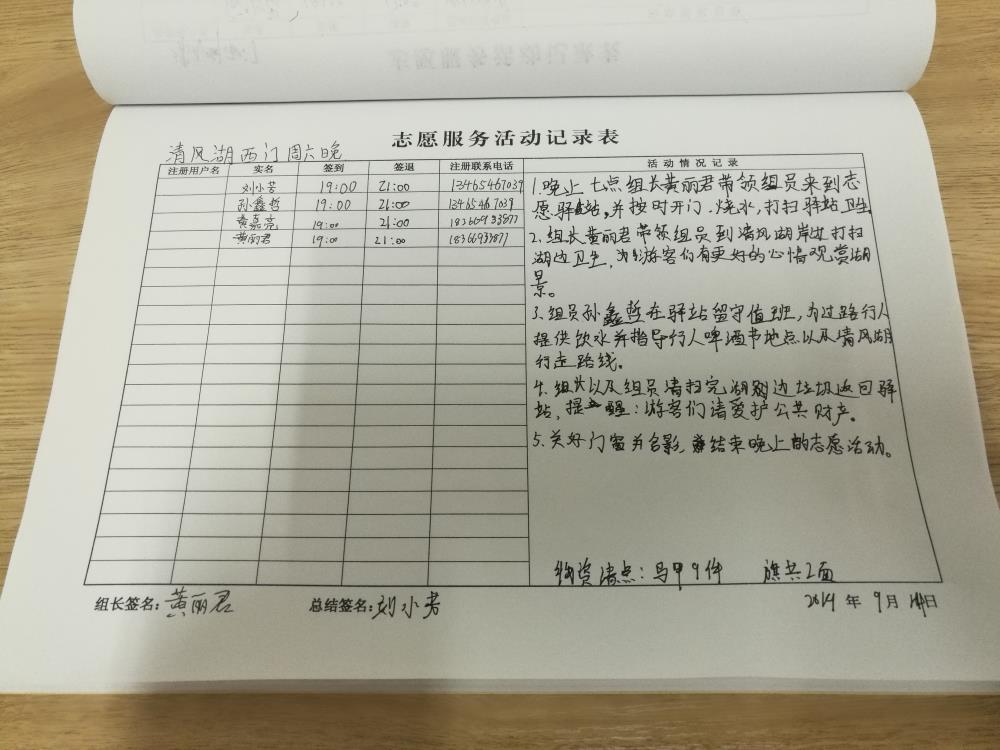 志愿服务活动记录表
清风湖西门周六晚
注册用户名 实名 签到 签退 注册联系电话 活动情况记录
刘小芳 19:00 21:00 13465467039
孙鑫哲 19:00 21:00 13465467039
黄嘉亮 19:00 21:00 18366933877
黄丽君 19:00 21:00 18366933877
1.晚上七点组长黄丽君带领组员来到志
愿驿站,并按时开门.烧水,打扫驿站卫生
2.组长黄丽君带领组员到清风湖岸边打扫
湖边卫生,为游客们有更好的心情观赏湖
景。
3.组员孙鑫哲在驿站留守值班,为过路行人
提供饮水并指导行人啤酒节地点以及清风湖
行走路线。
4.组长以及组员清扫完湖边垃圾返回驿
站,提醒:游客们请爱护公共财产。
5.关好门窗并合影,结束晚上的志愿活动。
物资清点:马甲9件 旗共2面
组长签名:黄丽君 总结签名:刘小芳 2019年9月14日